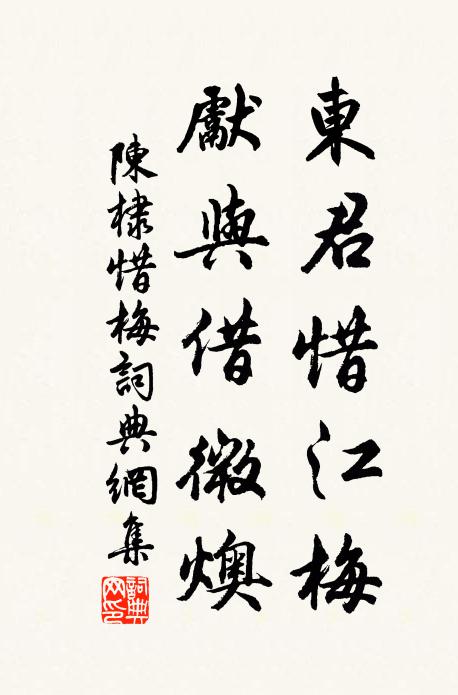 東君惜江梅
獻與借微燠
陳棣惜梅詞典網集
詞典網印